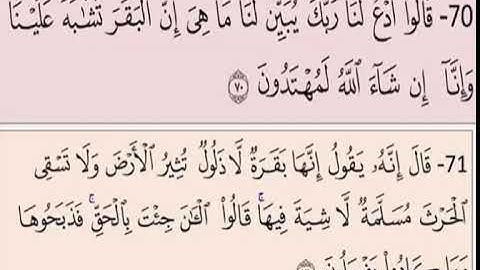 70- قَالُوا۟ ٱدْعُ لَنَا رَبَّكَ يُبَيِّن لَّنَا مَا هِىَ إِنَّ ٱلْبَقَرَ تَشَـٰبَهَ عَلَيْنَا
وَإِنَّآ إِن شَآءَ ٱللَّهُ لَمُهْتَدُونَ ٧٠
71- قَالَ إِنَّهُۥ يَقُولُ إِنَّهَا بَقَرَةٌ لَّا ذَلُولٌ تُثِيرُ ٱلْأَرْضَ وَلَا تَسْقِى
ٱلْحَرْثَ مُسَلَّمَةٌ لَّا شِيَةَ فِيهَا ۚ قَالُوا۟ ٱلْـَٔـٰنَ جِئْتَ بِٱلْحَقِّ ۚ فَذَبَحُوهَا